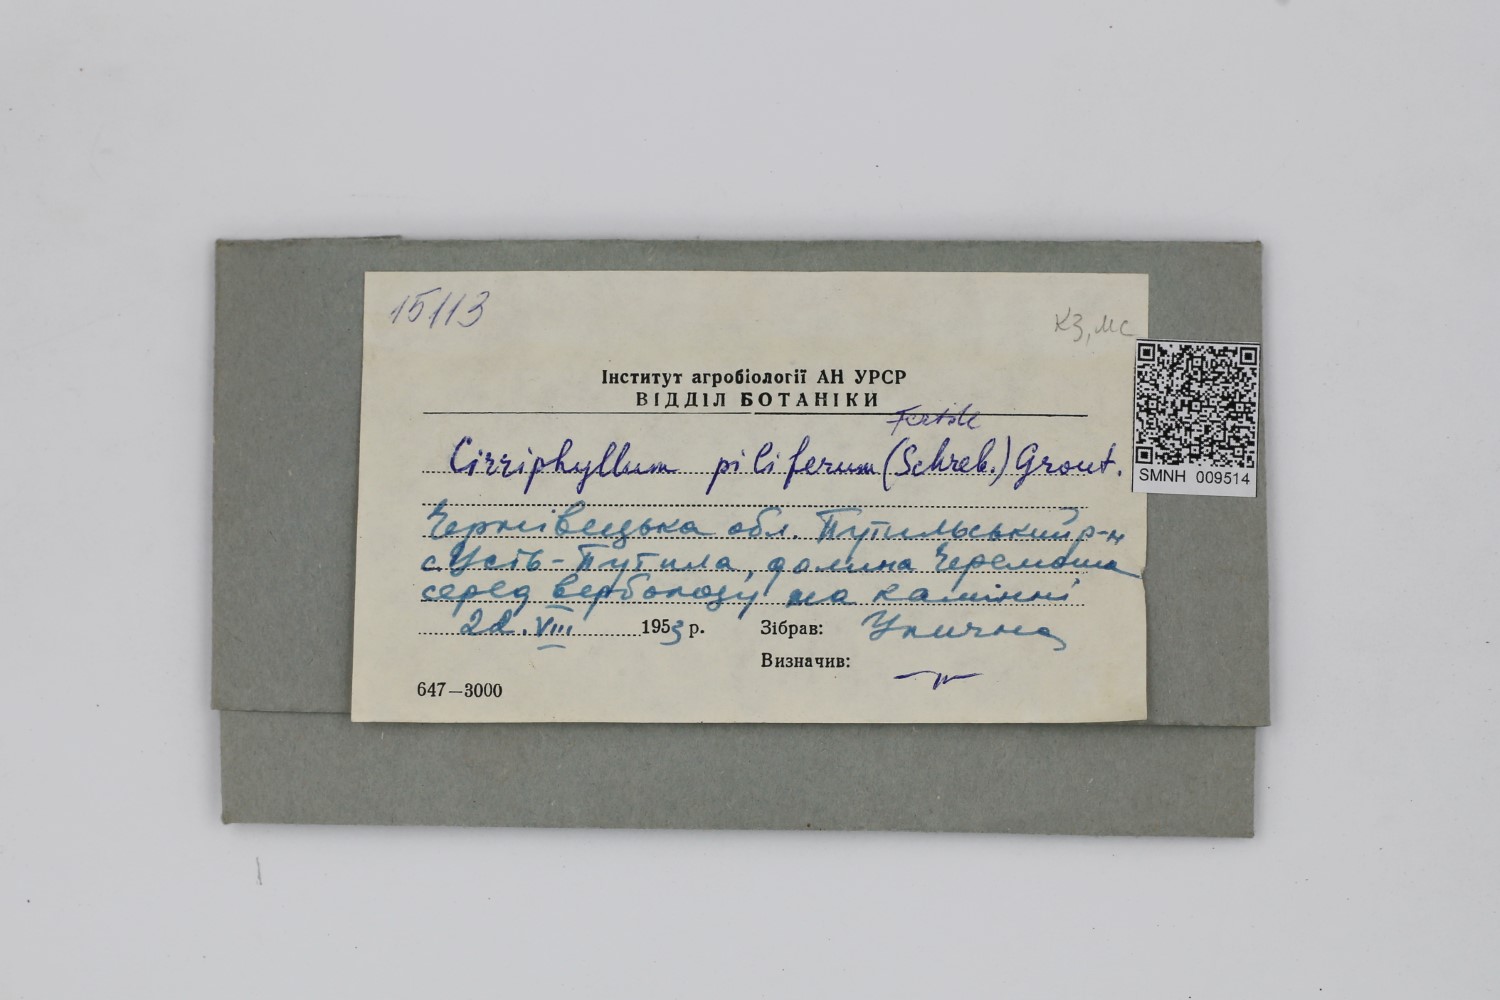 15113
КЗ, МС
Інститут агробіології АН УРСР
ВІДДІЛ БОТАНІКИ
Cirriphyllum piliferum (Schreb.) Grout.
SMNH 009514
Чернівецька обл. Путильський р-н
с. Усть-Путила, долина Черемоша
серед верболозу на камінні
22.VIII 1953 р. Зібрав: Улична
Визначив:
647—3000